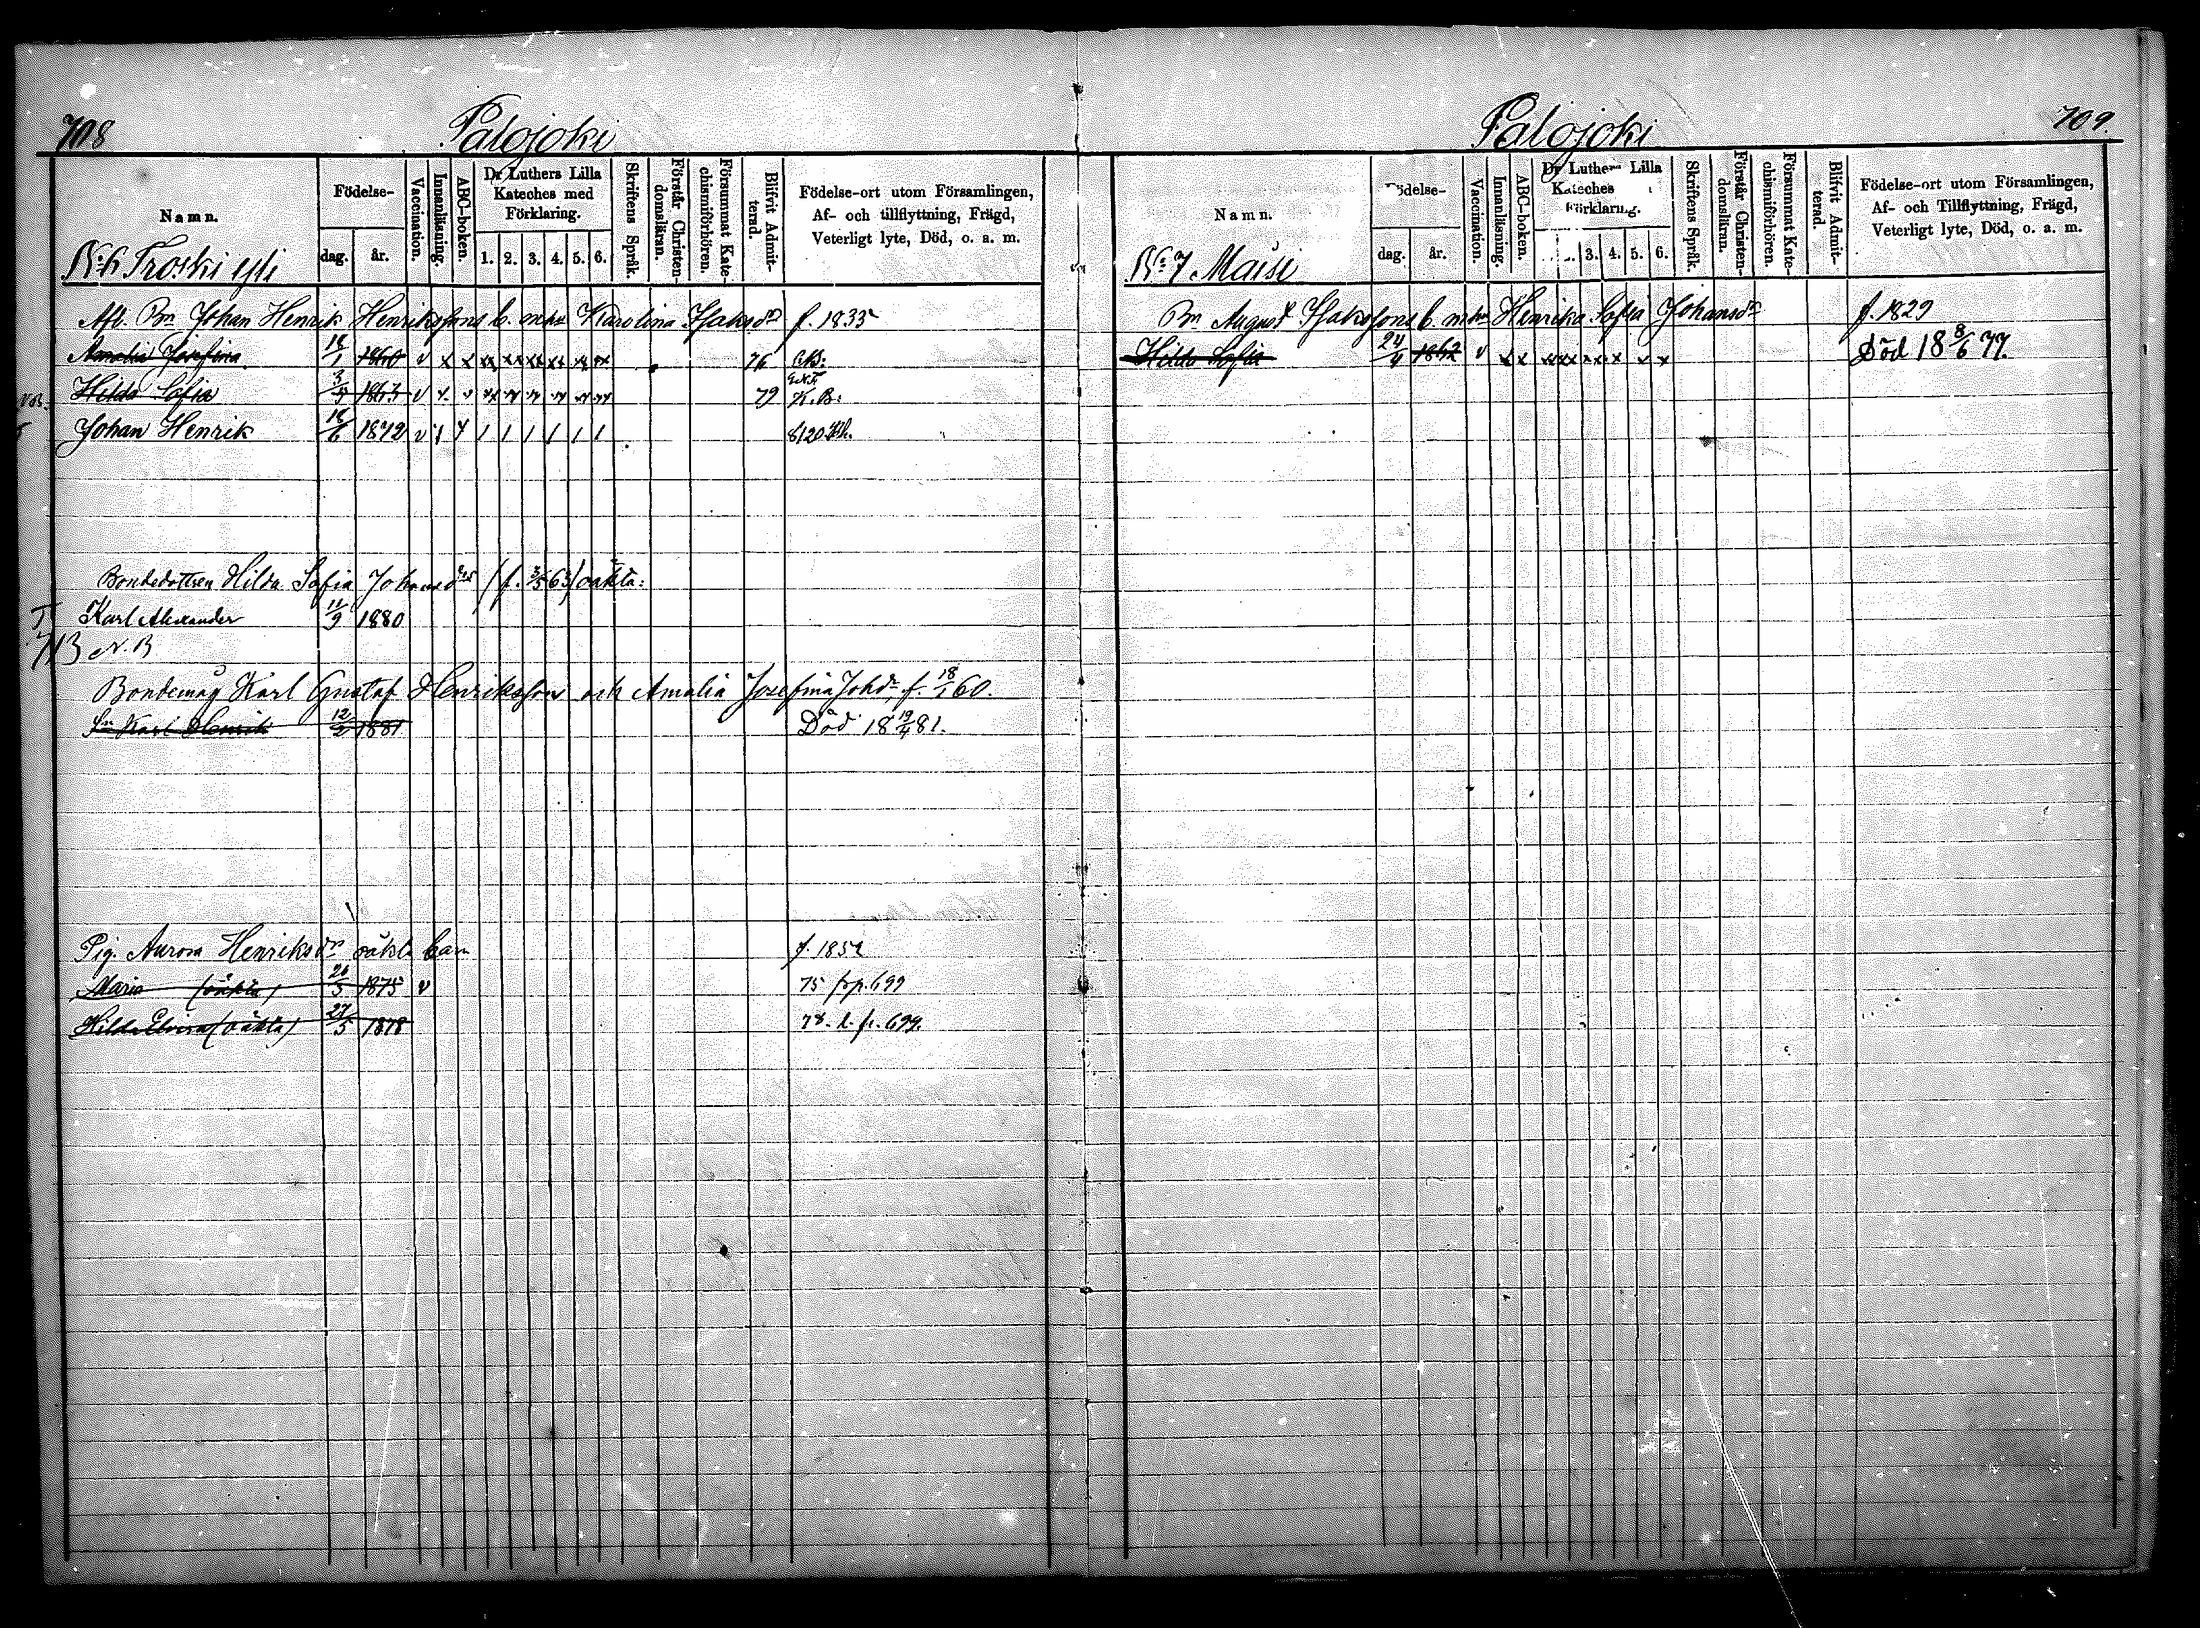 708
Palojoki
Namn.
Födelse-
dag.
år.
Vaccination.
Innanläsning.
ABC-boken.
Dr Luthers Lilla Kateches med Förklaring.
1. 2. 3. 4. 5. 6.
Skriftens Språk.
Förstår Christendomsläran.
Försummat Katechismiförhören.
Blifvit Admitterad.
Födelse-ort utom Församlingen,
Af- och tillflyttning, Frägd,
Veterligt lyte, Död, o. a. m.
Afl. Bn Johan Henrik Henrikssons b. m. h. Karolina f. 1835
Amalia Josefina 18/1 1860 v x x xx xx xx xx xx xx 76
Hilda Sofia 3/5 1863 v 79 K.B.
Johan Henrik 18/6 1872 v 1 1 1 1 1 1 1 8120
Bondedottren Hilda Sofia Johansdr (f. 3/5 63) oäkta:
Karl Alexander 11/9 1880
713 N.B
Bondemåg Karl Gustaf Henriksson och Amalia Josefina Johdr f. 18/1 60.
Sn Karl Henrik 12/2 1881 Död 18 19/4 81.
Pig. Aurora Henriksdr oäkta barn f. 1852
Maria (oäkta) 26/5 1875 v 75 fr p. 699
Hilda Elvira (oäkta) 27/5 1878 78. l. fr. 699.
Palojoki
709.
Namn.
Födelse-
dag.
år.
Vaccination.
Innanläsning.
ABC-boken.
Dr Luthers Lilla
Kateches
Förklaring.
3. 4. 5. 6.
Skriftens Språk.
Förstår Christendomsläran.
Försummat Katechismiförhören.
Blifvit Admitterad.
Födelse-ort utom Församlingen,
Af- och Tillflyttning, Frägd,
Veterligt lyte, Död, o. a. m.
No 7 Maisi
Bn August b. m. h. Henrika Sofia Johansdr f. 1829
Hilda Sofia 24/4 1862 v x x Död 18 8/6 77.